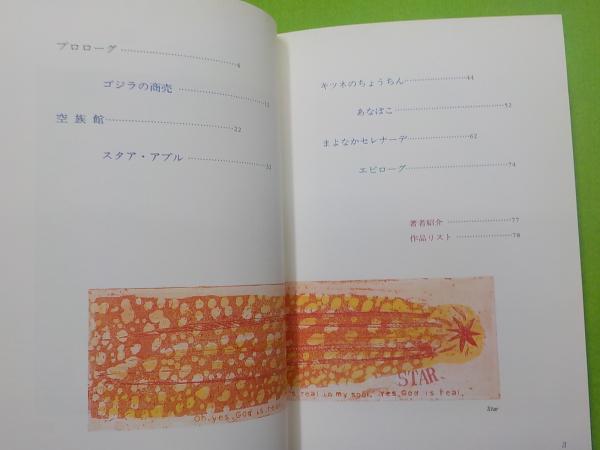 プロローグ ……………… 6
ゴジラの商売 ……………… 11
空族館 ……………… 22
スタア・アブル ……………… 33
キツネのちょうちん ……………… 44
あなぼこ ……………… 52
まよなかセレナーデ ……………… 62
エピローグ ……………… 74
著者紹介 ……………… 77
作品リスト ……………… 78
STAR
Oh, yes, God is real. real in my soul. Yes, God is real.
Star
3